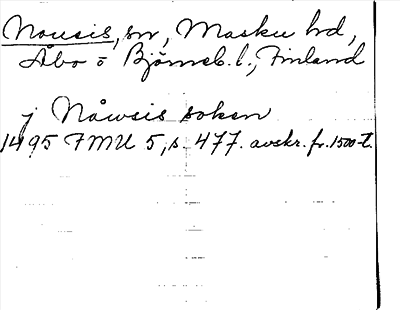 Nousis, sn, Masku hd,
Åbo o Björneb. l., Finland
j Nåwsis soken
1495 FMU 5, s. 477. avskr. fr. 1500-t.